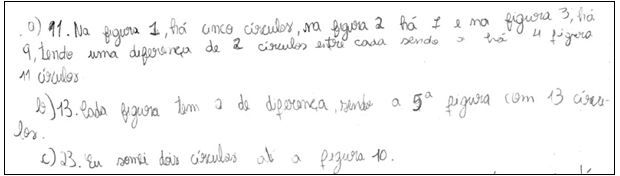 a) 11. Na figura 1, há cinco círculos, na figura 2 há 7 e na figura 3, há
9, tendo uma diferença de 2 círculos entre cada sendo a 4 figura
11 círculos
b) 13. Cada figura tem 2 de diferença, sendo a 5ª figura com 13 círcu-
los.
c) 23. Eu somei dois círculos até a figura 10.